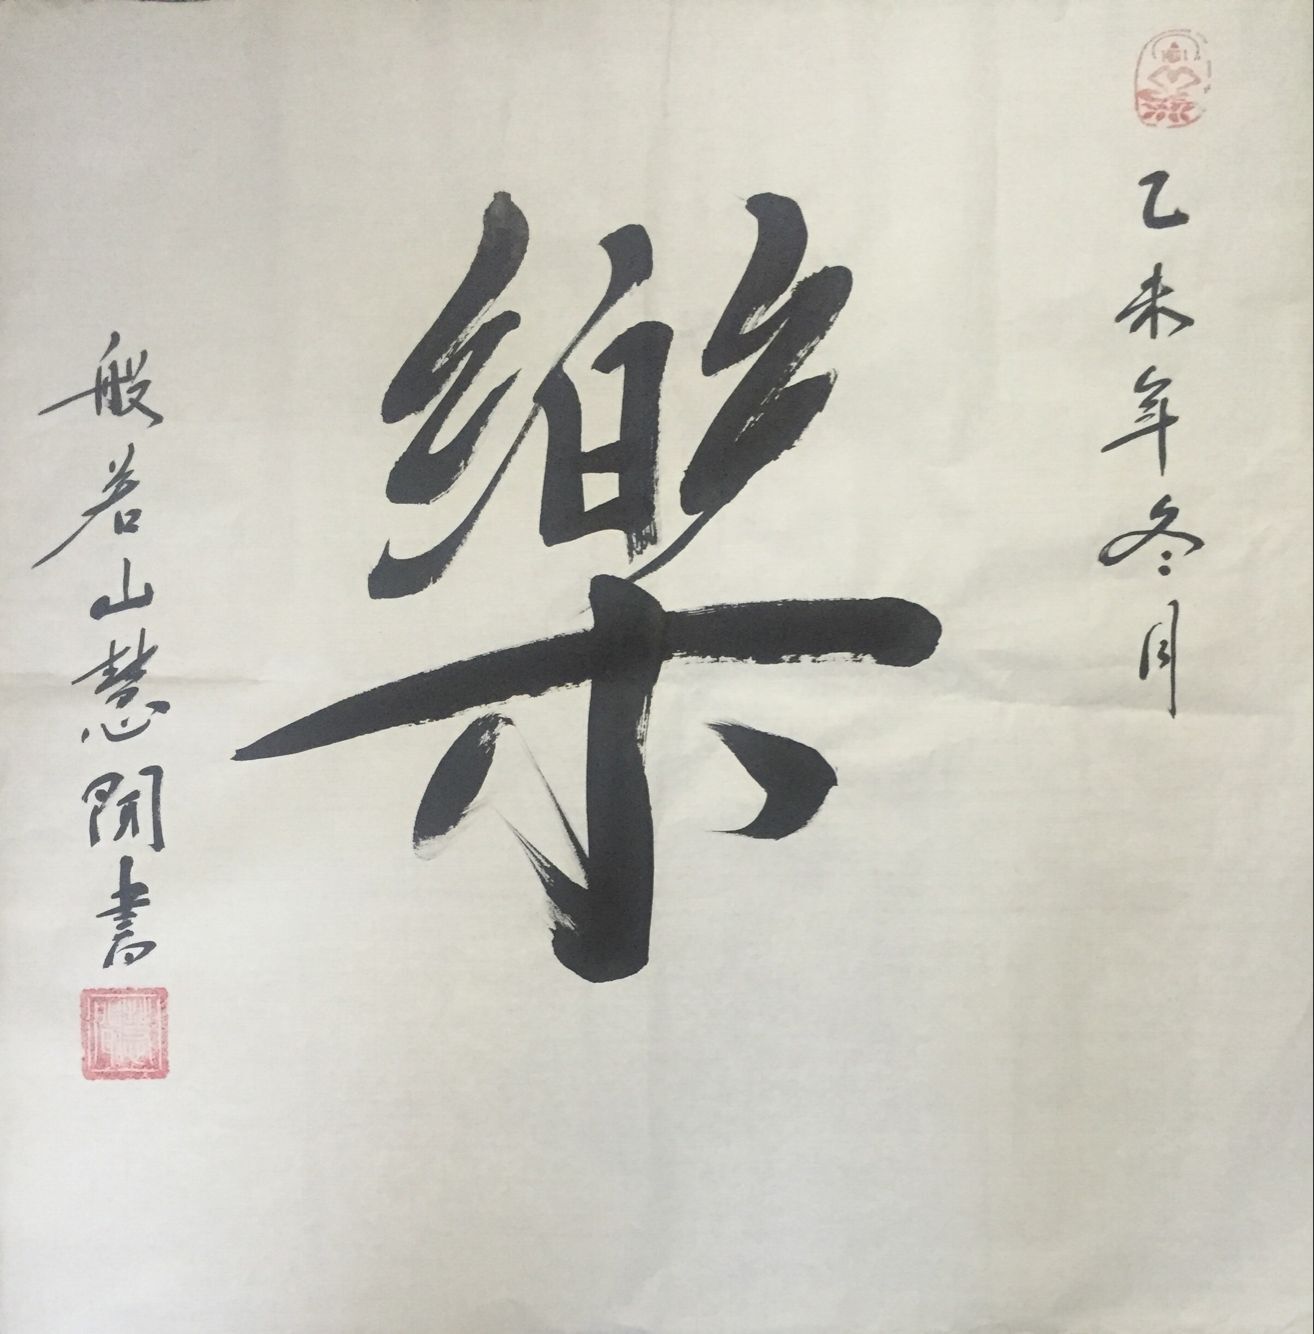 乙未年冬月
樂
般若山慧開書